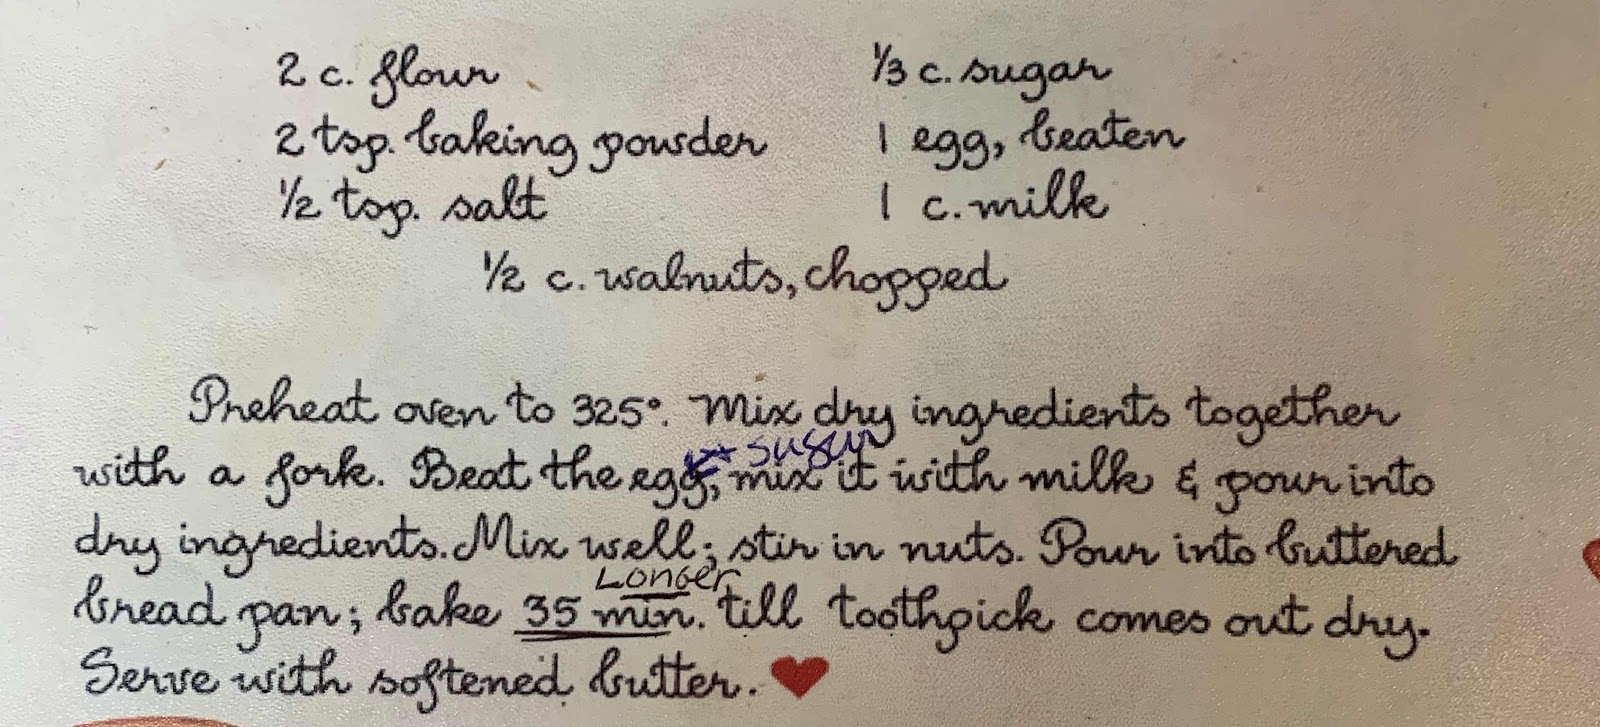 2 c. flour
1/3 c. sugar
2 tsp. baking powder
1 egg, beaten
1/2 tsp. salt
1 c. milk
1/2 c. walnuts, chopped
Preheat oven to 325°. Mix dry ingredients together
+ sugar
with a fork. Beat the egg, mix it with milk & pour into
dry ingredients. Mix well; stir in nuts. Pour into buttered
Longer
bread pan; bake 35 min. till toothpick comes out dry.
Serve with softened butter.